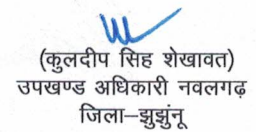 (कुलदीप सिह शेखावत)
उपखण्ड अधिकारी नवलगढ़
जिला–झुझुंनू